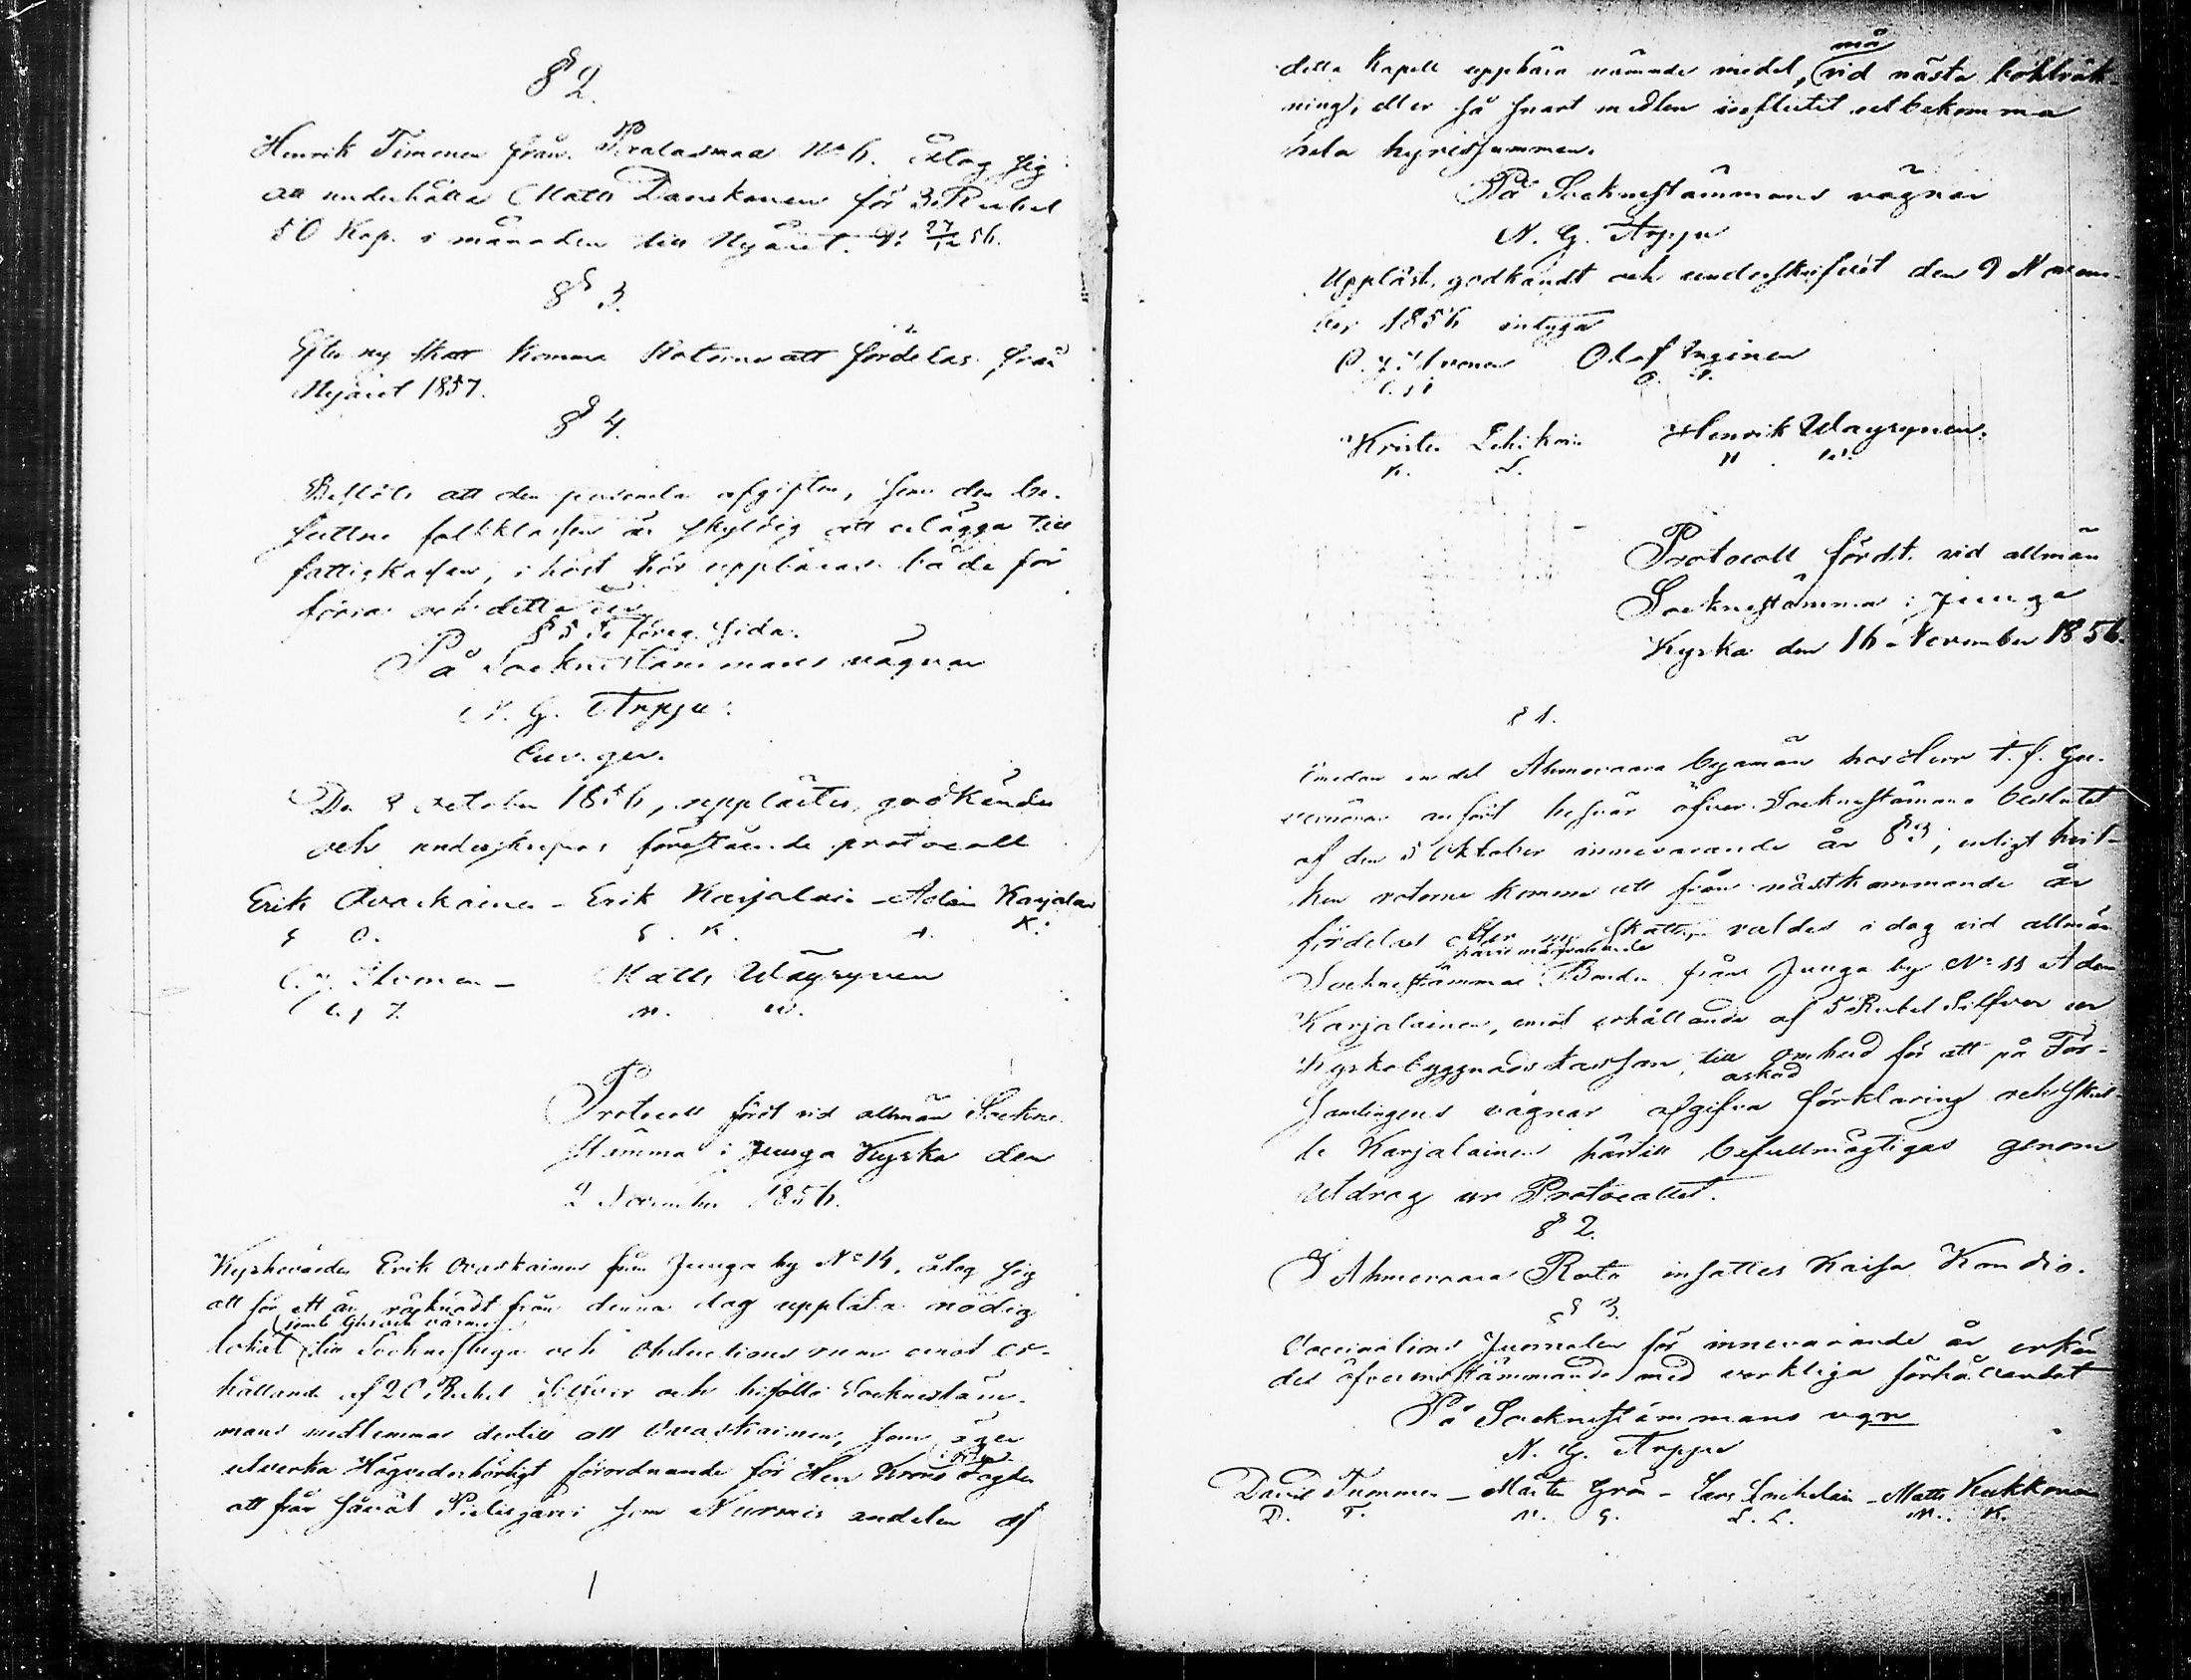 § 2.
Henrik Timonen från Peralasmaa No 6. åtog sig
att underhålla Matts Danskanen för 3 Rubel
50 Kop. i månaden till Nyåret. D: 27/12 56.
§ 3.
Efter ny skatt komma Roterne att fördelas från
Nyåret 1857.
§ 4.
Beslöts att den personela afgiften, som den be-
suttne folkklassen är skyldig att erlägga till
fattigkassan, i höst bör uppbäras både för
förra och detta år
§ 5 Se föreg. sida.
På Socknestämmans vägnar
N. G. Arppe.
Cur. ger.
De 8 october 1856, upplästes, godkändes
och underskrefs förestående protocoll
Erik Ovaskainen - Erik Karjalain - Adam Karjalain
E O. E. K. A. K.
C. J. Ikonen - Matts Wäyrynen
C. J. I. M. W.
Protocoll fördt vid allmän Sockne-
stämma i Juuga Kyrka den
2 November 1856.
Kyrkovärden Erik Ovaskainen från Juuga by No 14, åtog sig
att för ett år, räknadt från denna dag upplåta nödig
samt ljus och värme
lokal till Socknestuga och Obductions rum emot er-
hållande af 20 Rubel Silfver och biföllo Socknestäm-
mans medlemmar dertill att Ovaskainen, som äger
utverka Högvederbörligt förordnande för Herr Krono Fogden
att från såväl Pielisjärvi som Nurmis andelen af
detta Kapell uppbära nämnde medel, må vid nästa bokräk-
ning, eller så snart medlen influtit utbekomma
hela hyressumman.
På Socknestämmans vägnar
N. G. Arppe
Uppläst, godkändt och underskrifvit den 9 Novem-
ber 1856 intyga
C. J. Ikonen Olof Turinen
C. J. I. O. T.
Krister Lehikoin Henrik Wäyrynen.
K. L. H. W.
Protocoll fördt vid allmän
Socknestämma i Juuga
Kyrka den 16 November 1856.
§ 1.
Emedan en del Ahmovaara byamän hos Herr t. f. Gu-
vernören anfört besvär öfver Socknestämmo beslutet
af den 5 Oktober innevarande år § 3, enligt hvil-
ken roterne komma att från nästkommande år
fördelas efter ny skatt, valdes i dag vid allmän
Socknestämma Bonden från Juuga by No 11 Adam
Karjalainen, emot erhållande af 5 Rubel Silfver ur
Kyrkobyggnads kassan, till ombud för att på För-
samlingens vägnar afgifva äskad förklaring och skul-
le Karjalainen härtill befullmägtigas genom
Utdrag ur Protocollet.
§ 2.
I Ahmovaara Rote insattes Kaisa Kondio.
§ 3.
Vaccinations Journalen för innevarande år erkän-
des öfverensstämmande med verkliga förhållandet
På Socknestämmans vgr
N. G. Arppe
David Tummen - Mårten Grön - Lars Lehikoin - Matts Kukkonen
D. T. M. G. L. L. M. K.